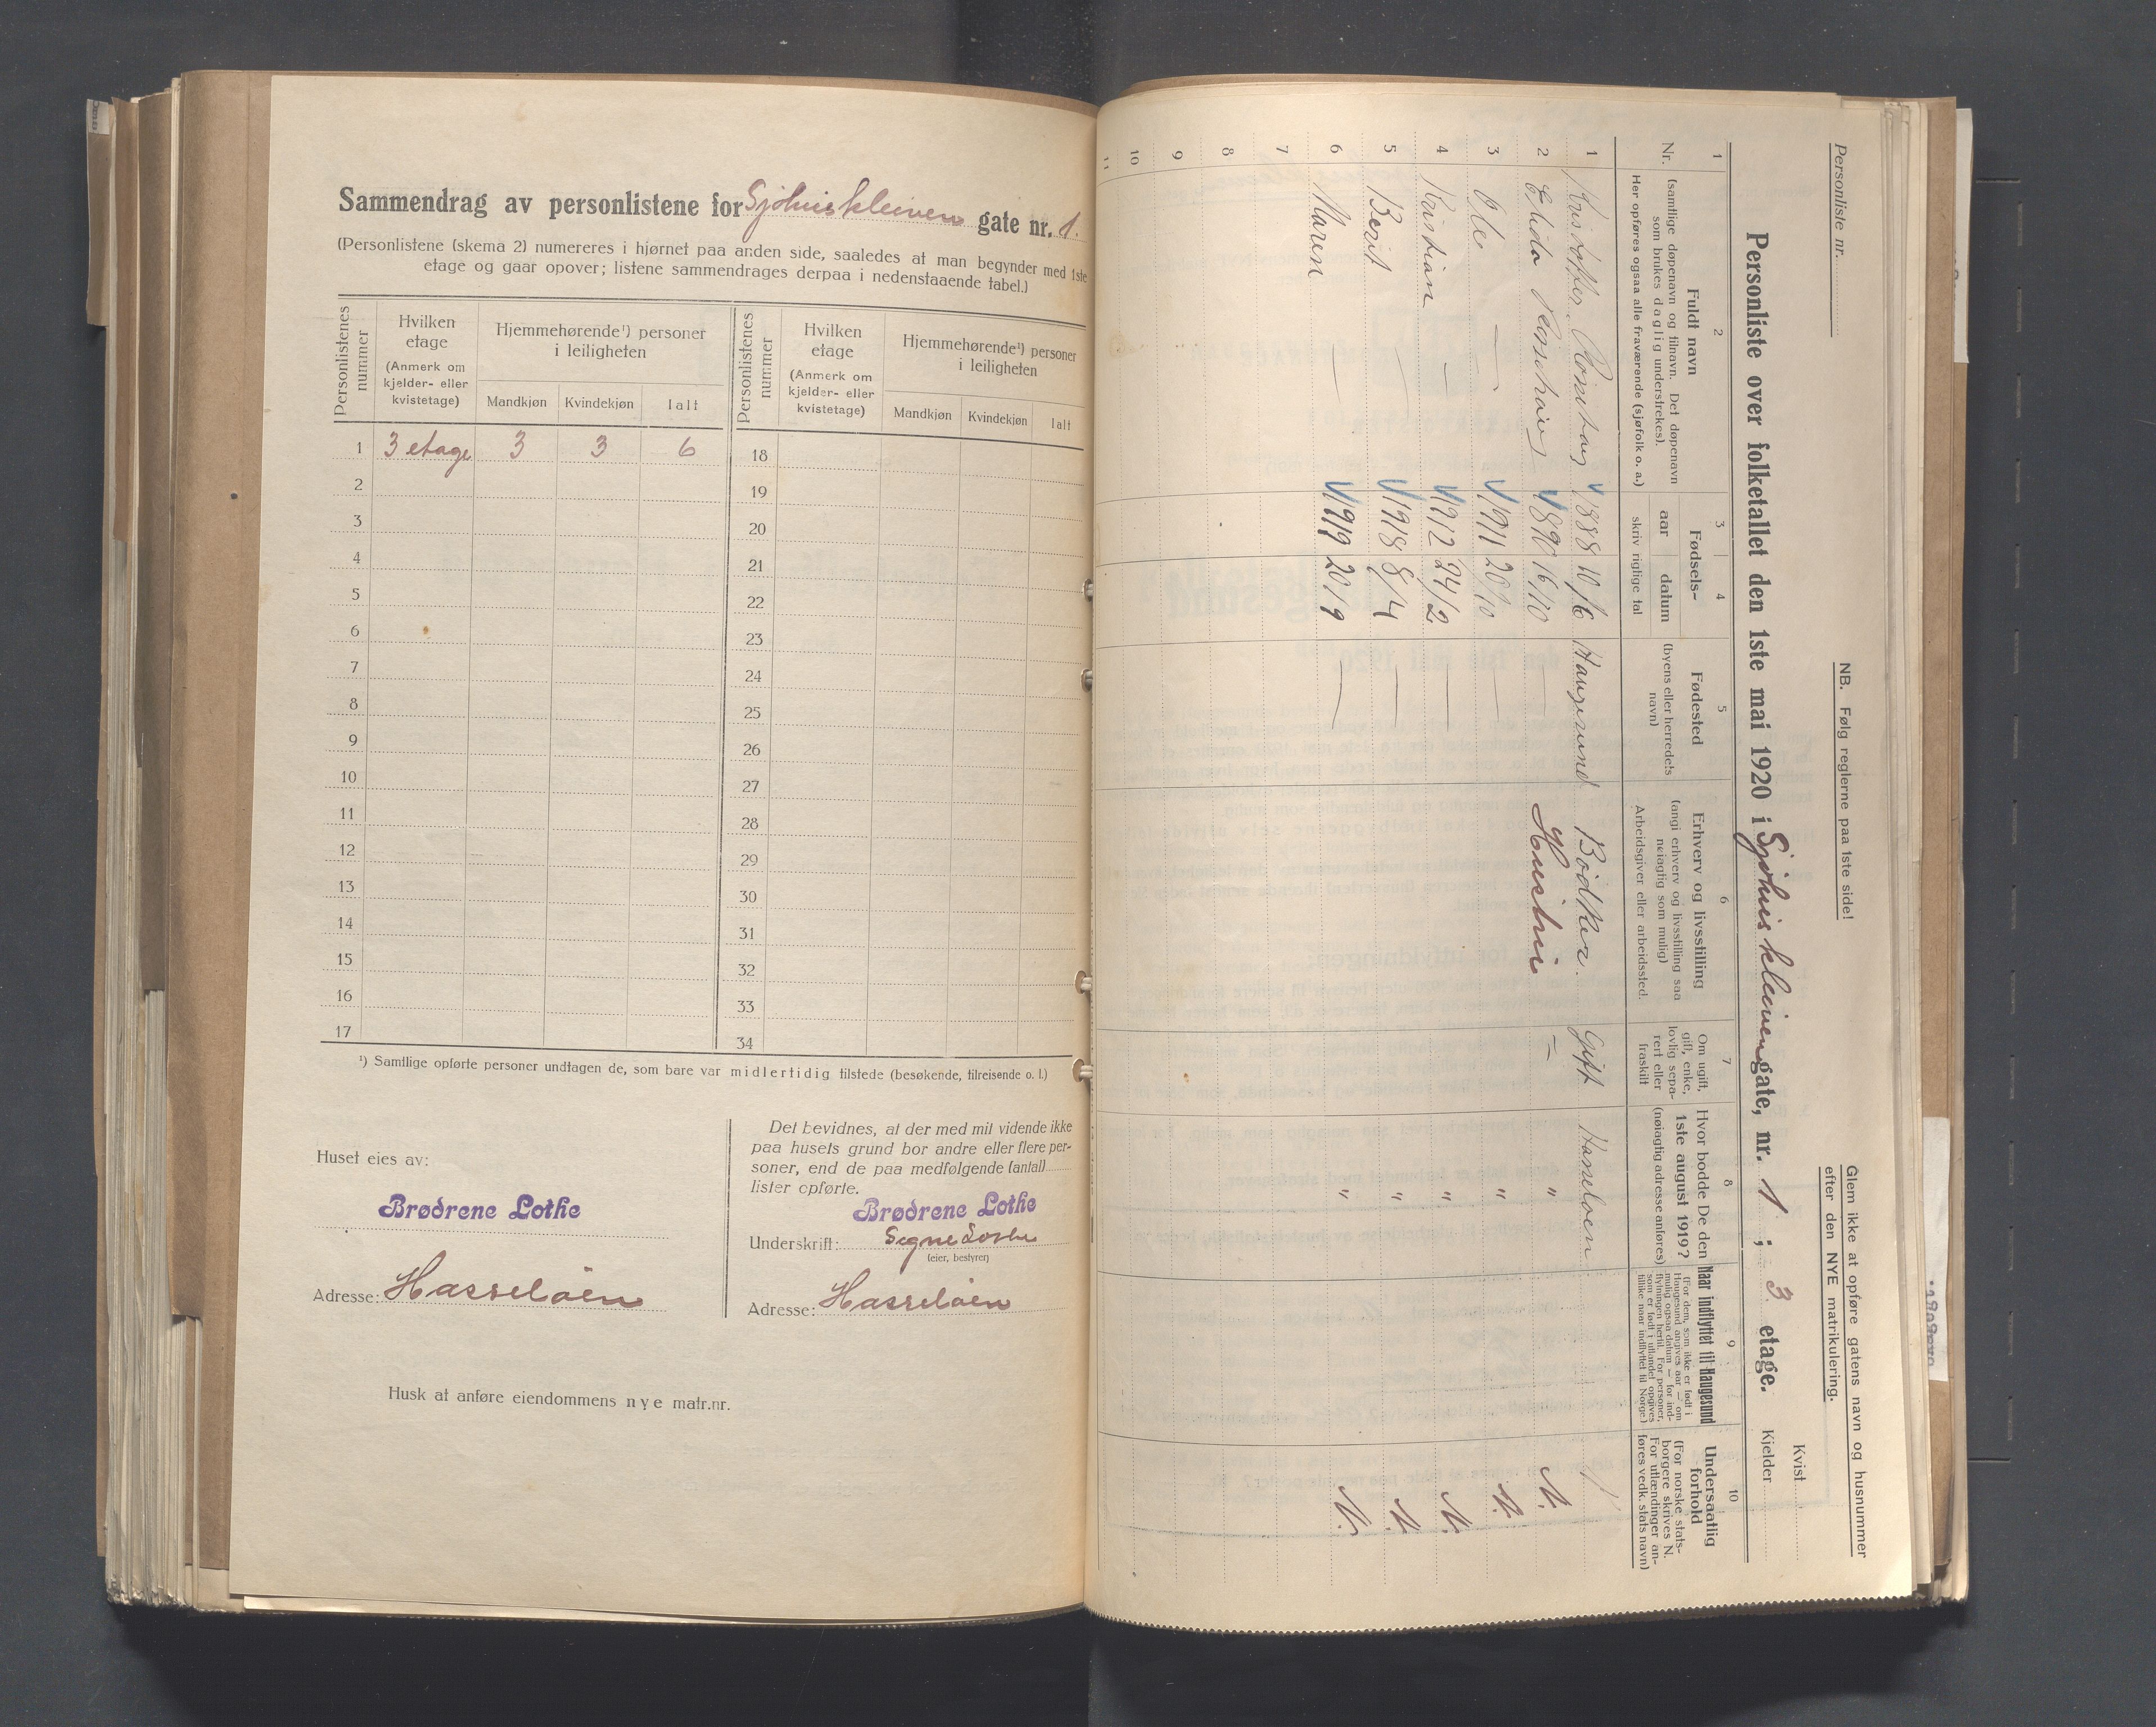 Sammendrag av personlistene for Sjøhuskleiven gate nr. 1.
(Personlistene (skema 2) numereres i hjørnet paa anden side, saaledes at man begynder med 1ste
etage og gaar opover; listene sammendrages derpaa i nedenstaaende tabel.)
Personlistenes nummer
Hvilken etage
(Anmerk om kjelder- eller kvistetage)
Hjemmehørende¹) personer i leiligheten
Mandkjøn Kvindekjøn Ialt
Personlistenes nummer
Hvilken etage
(Anmerk om kjelder- eller kvistetage)
Hjemmehørende¹) personer i leiligheten
Mandkjøn Kvindekjøn Ialt
1 3 etage 3 3 6 18
2 19
3 20
4 21
5 22
6 23
7 24
8 25
9 26
10 27
11 28
12 29
13 30
14 31
15 32
16 33
17 34
¹) Samtlige opførte personer undtagen de, som bare var midlertidig tilstede (besøkende, tilreisende o. l.)
Huset eies av:
Brødrene Lothe
Adresse: Hasseløen
Det bevidnes, at der med mit vidende ikke
paa husets grund bor andre eller flere per-
soner, end de paa medfølgende (antal)
lister opførte.
Brødrene Lothe
Underskrift: Signe Lothe
(eier, bestyrer)
Adresse: Hasseløen
Husk at anføre eiendommens nye matr.nr.
Personliste nr.
NB. Følg reglerne paa 1ste side!
Glem ikke at opføre gatens navn og husnummer
efter den NYE matrikulering.
Kvist
Personliste over folketallet den 1ste mai 1920 i Sjøhuskleiven gate, nr. 1 ; 3 etage.
Kjelder
1 2 3 4 5 6 7 8 9 10
Nr.
Fuldt navn
(samtlige døpenavn og tilnavn. Det døpenavn
som brukes daglig understrekes).
Her opføres ogsaa alle fraværende (sjøfolk o. a.)
Fødsels-
aar datum
skriv riglige tal
Fødested
(byens eller herredets
navn)
Erhverv og livsstilling
(angi erhverv og livsstilling saa
nøiagtig som mulig)
Arbeidsgiver eller arbeidssted.
Om ugift,
gift, enke,
lovlig sepa-
rert eller
fraskilt
Hvor bodde De den
1ste august 1919?
(nøiagtig adresse anføres)
Naar indflyttet til Haugesund
(For dem, som ikke er født i
Haugesund angives aar — om
mulig ogsaa datum — for ind-
flytningen hertil. For personer,
som er født i utlandet opgives
tillike naar indflyttet til Norge.)
Undersaatlig
forhold
(For norske stats-
borgere skrives N.
For utlændinger an-
føres vedk. stats navn)
1 Kristoffer Rønehaug 1888 10/6 Haugesund Bødker. Gift Hasseløen
2 1890 16/10 — Hustru = " N.
3 Ole — 1911 20/10 — " N.
4 Kristian — 1912 24/2 — " N.
5 Berit — 1918 8/4 — " N.
6 Maren — 1919 20/9 — " N.
7
8
9
10
11